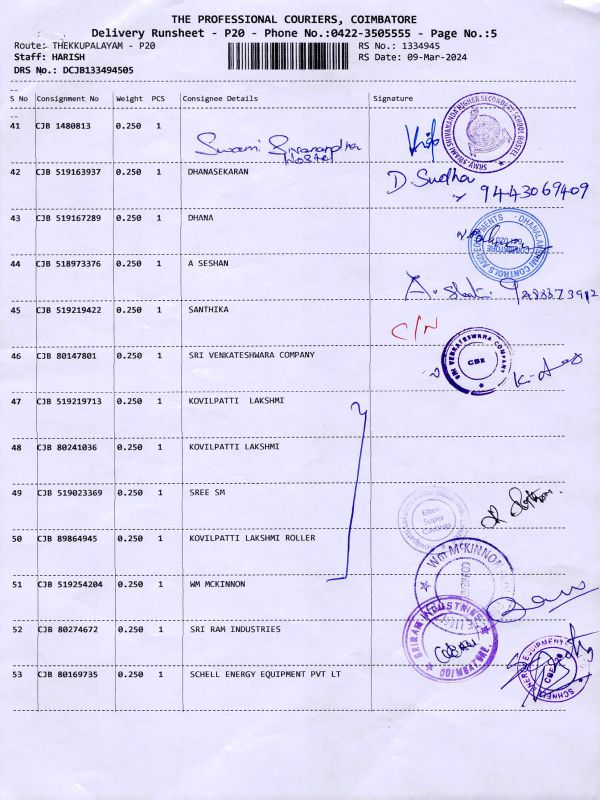 THE PROFESSIONAL COURIERS, COIMBATORE
Delivery Runsheet - P20 - Phone No.:0422-3505555 - Page No.:5
Route: THEKKUPALAYAM - P20 RS No.: 1334945
Staff: HARISH RS Date: 09-Mar-2024
DRS No.: DCJB133494505
S No Consignment No Weight PCS Consignee Details Signature
41 CJB 1480813 0.250 1
Swami Sivanandha
Hostel
42 CJB 519163937 0.250 1 DHANASEKARAN D. Sudha
9443069409
43 CJB 519167289 0.250 1 DHANA
44 CJB 518973376 0.250 1 A SESHAN
45 CJB 519219422 0.250 1 SANTHIKA C/N
46 CJB 80147801 0.250 1 SRI VENKATESHWARA COMPANY
SRI VENKATESWARA COMPANY
CBE
47 CJB 519219713 0.250 1 KOVILPATTI LAKSHMI
48 CJB 80241036 0.250 1 KOVILPATTI LAKSHMI
49 CJB 519023369 0.250 1 SREE SM
50 CJB 89864945 0.250 1 KOVILPATTI LAKSHMI ROLLER
51 CJB 519254204 0.250 1 WM MCKINNON
52 CJB 80274672 0.250 1 SRI RAM INDUSTRIES
SRIRAM INDUSTRIES
COIMBATORE
53 CJB 80169735 0.250 1 SCHELL ENERGY EQUIPMENT PVT LT